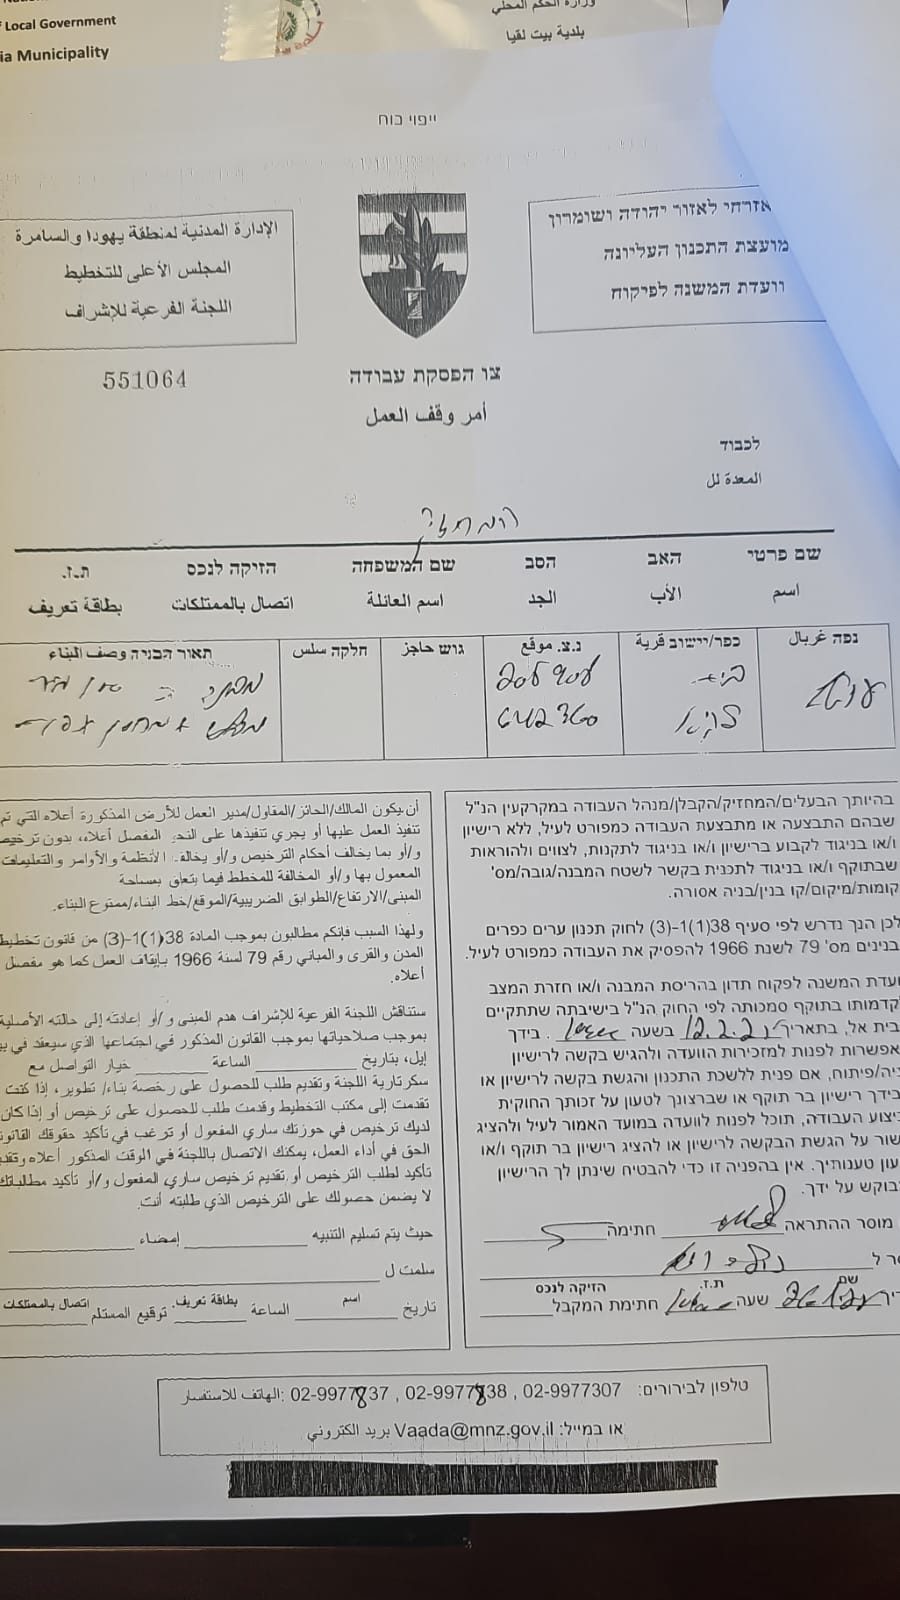 Local Government
ia Municipality
وزارة الحكم المحلي
بلدية بيت لقيا
ייפוי כוח
אזרחי לאזור יהודה ושומרון
מועצת התכנון העליונה
וועדת המשנה לפיקוח
الإدارة المدنية لمنطقة يهودا والسامرة
المجلس الأعلى للتخطيط
اللجنة الفرعية للإشراف
551064
צו הפסקת עבודה
أمر وقف العمل
לכבוד
المعدة لل
המחזיק
שם פרטי האב הסב שם המשפחה הזיקה לנכס ת.ז.
اسم الأب الجد اسم العائلة اتصال بالممتلكات بطاقة تعريف
נפה غربال כפר/יישוב قرية נ.צ. موقع גוש حاجز חלקה سلس תאור הבניה وصف البناء
בית
לקיא
בהיותך הבעלים/המחזיק/הקבלן/מנהל העבודה במקרקעין הנ"ל
שבהם התבצעה או מתבצעת העבודה כמפורט לעיל, ללא רישיון
ו/או בניגוד לקבוע ברישיון ו/או בניגוד לתקנות, לצווים ולהוראות
שבתוקף ו/או בניגוד לתכנית בקשר לשטח המבנה/גובה/מס'
קומות/מיקום/קו בנין/בניה אסורה.
לכן הנך נדרש לפי סעיף 38(1)1-(3) לחוק תכנון ערים כפרים
בנינים מס' 79 לשנת 1966 להפסיק את העבודה כמפורט לעיל.
ועדת המשנה לפקוח תדון בהריסת המבנה ו/או חזרת המצב
לקדמותו בתוקף סמכותה לפי החוק הנ"ל בישיבתה שתתקיים
בית אל, בתאריך בשעה . בידך
אפשרות לפנות למזכירות הוועדה ולהגיש בקשה לרישיון
יה/פיתוח, אם פנית ללשכת התכנון והגשת בקשה לרישיון או
בידך רישיון בר תוקף או שברצונך לטעון על זכותך החוקית
ביצוע העבודה, תוכל לפנות לוועדה במועד האמור לעיל ולהציג
שור על הגשת הבקשה לרישיון או להציג רישיון בר תוקף ו/או
עון טענותיך. אין בהפניה זו כדי להבטיח שינתן לך הרישיון
בוקש על ידך.
מוסר ההתראה חתימה
ר ל
שם ת.ז. הזיקה לנכס
יך שעה חתימת המקבל
أن يكون المالك/الحائز/المقاول/مدير العمل للأرض المذكورة أعلاه التي تم
تنفيذ العمل عليها أو يجري تنفيذها على النحو المفصل أعلاه، بدون ترخيص
و/أو بما يخالف أحكام الترخيص و/أو يخالف الأنظمة والأوامر والتعليمات
المعمول بها و/أو المخالفة للمخطط فيما يتعلق بمساحة
المبنى/الارتفاع/الطوابق الضريبية/الموقع/خط البناء/ممنوع البناء.
ولهذا السبب فإنكم مطالبون بموجب المادة 38(1)1-(3) من قانون تخطيط
المدن والقرى والمباني رقم 79 لسنة 1966 بإيقاف العمل كما هو مفصل
أعلاه.
ستناقش اللجنة الفرعية للإشراف هدم المبنى و/أو إعادته إلى حالته الأصلية
بموجب صلاحياتها بموجب القانون المذكور في اجتماعها الذي سيعقد في بي
إيل، بتاريخ الساعة خيار التواصل مع
سكرتارية اللجنة وتقديم طلب للحصول على رخصة بناء/ تطوير، إذا كنت
تقدمت إلى مكتب التخطيط وقدمت طلب للحصول على ترخيص أو إذا كان
لديك ترخيص في حوزتك ساري المفعول أو ترغب في تأكيد حقوقك القانو
الحق في أداء العمل، يمكنك الاتصال باللجنة في الوقت المذكور أعلاه وتقد
تأكيد لطلب الترخيص أو تقديم ترخيص ساري المفعول و/أو تأكيد مطالباتك
لا يضمن حصولك على الترخيص الذي طلبته أنت.
حيث يتم تسليم التنبيه إمضاء
سلمت ل
اسم بطاقة تعريف. اتصال بالممتلكات
تاريخ الساعة توقيع المستلم
טלפון לבירורים: 02-9977307 , 02-9977838 , 02-9977837 :الهاتف للاستفسار
או במייל: Vaada@mnz.gov.il بريد الكتروني